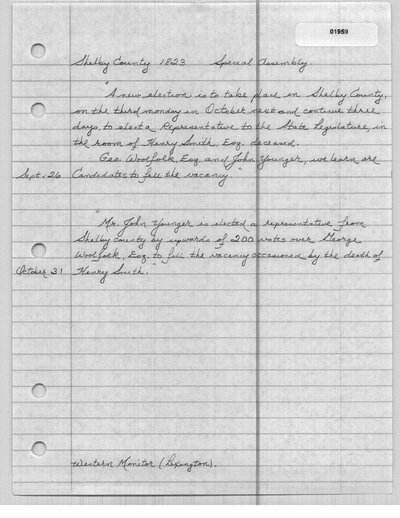 01959
Shelby County 1823 Special Assembly.
"A new election is to take place in Shelby County,
on the third monday in October next and continue three
days, to elect a Representative to the State Legislature, in
the room of Henry Smith, Esq. deceased.
Geo. Woolfolk, Esq. and John Younger, we learn are
Sept. 26 Candidates to fill the vacancy"
"Mr. John Younger is elected a representative from
Shelby County by upwards of 200 votes over George
Woolfolk, Esq. to fill the vacancy occasioned by the death of
October 31 Henry Smith."
Western Monitor (Lexington).